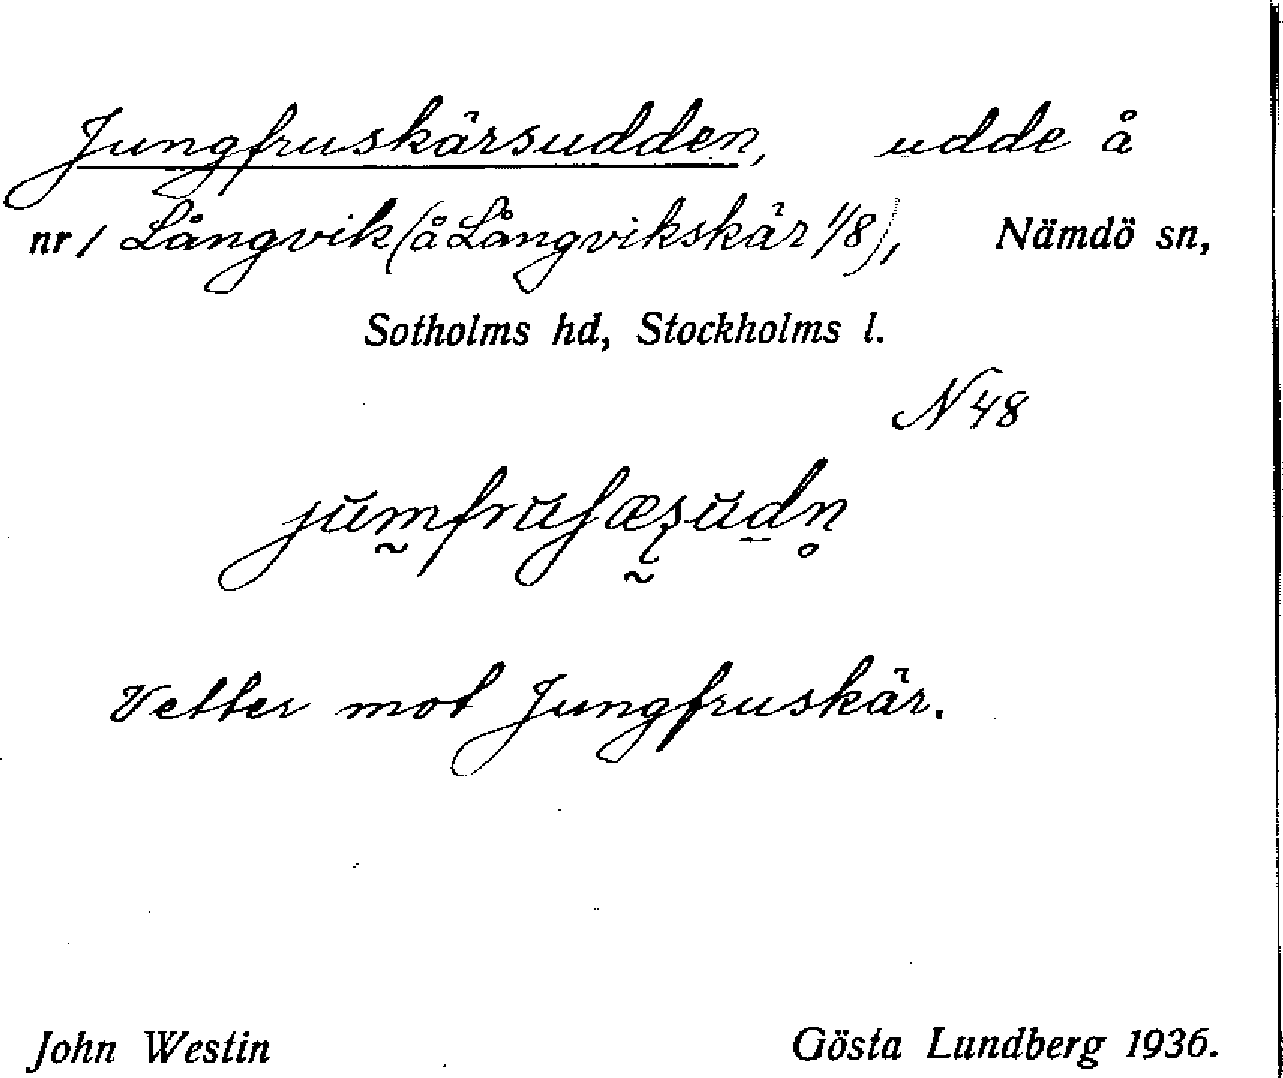 Jungfruskärsudden, udde å
nr 1 Långvik (å Långvikskär 1/8), Nämdö sn,
Sotholms hd, Stockholms l.
N 48
Vetter mot Jungfruskär.
John Westin Gösta Lundberg 1936.